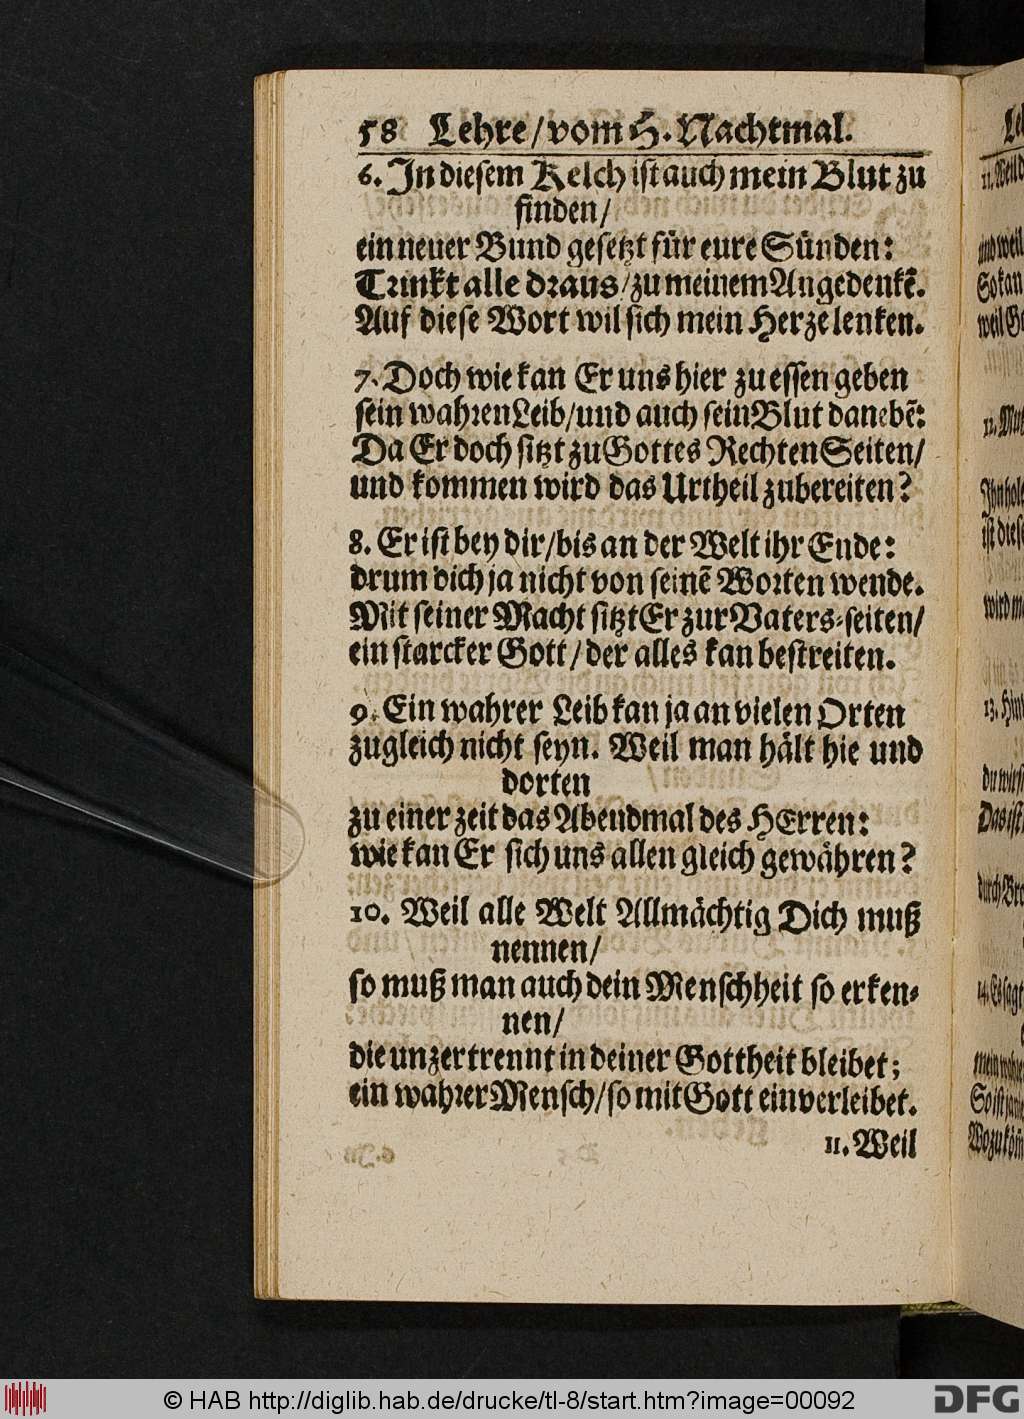 58 Lehre/vom H. Nachtmal.
6. In diesem Kelch ist auch mein Blut zu
finden/
ein neuer Bund gesetzt für eure Sünden:
Trinkt alle draus/zu meinem Angedenkẽ.
Auf diese Wort wil sich mein Herze lenken.
7. Doch wie kan Er uns hier zu essen geben
sein wahren Leib/und auch sein Blut danebẽ:
Da Er doch sitzt zu Gottes Rechten Seiten/
und kommen wird das Urtheil zubereiten?
8. Er ist bey dir/bis an der Welt ihr Ende:
drum dich ja nicht von seinẽ Worten wende.
Mit seiner Macht sitzt Er zur Vaters-seiten/
ein starcker Gott/der alles kan bestreiten.
9. Ein wahrer Leib kan ja an vielen Orten
zugleich nicht seyn. Weil man hält hie und
dorten
zu einer zeit das Abendmal des HErren:
wie kan Er sich uns allen gleich gewähren?
10. Weil alle Welt Allmächtig Dich muß
nennen/
so muß man auch dein Menschheit so erken-
nen/
die unzertrennt in deiner Gottheit bleibet;
ein wahrer Mensch/so mit Gott einverleibet.
11. Weil
© HAB http://diglib.hab.de/drucke/tl-8/start.htm?image=00092
DFG